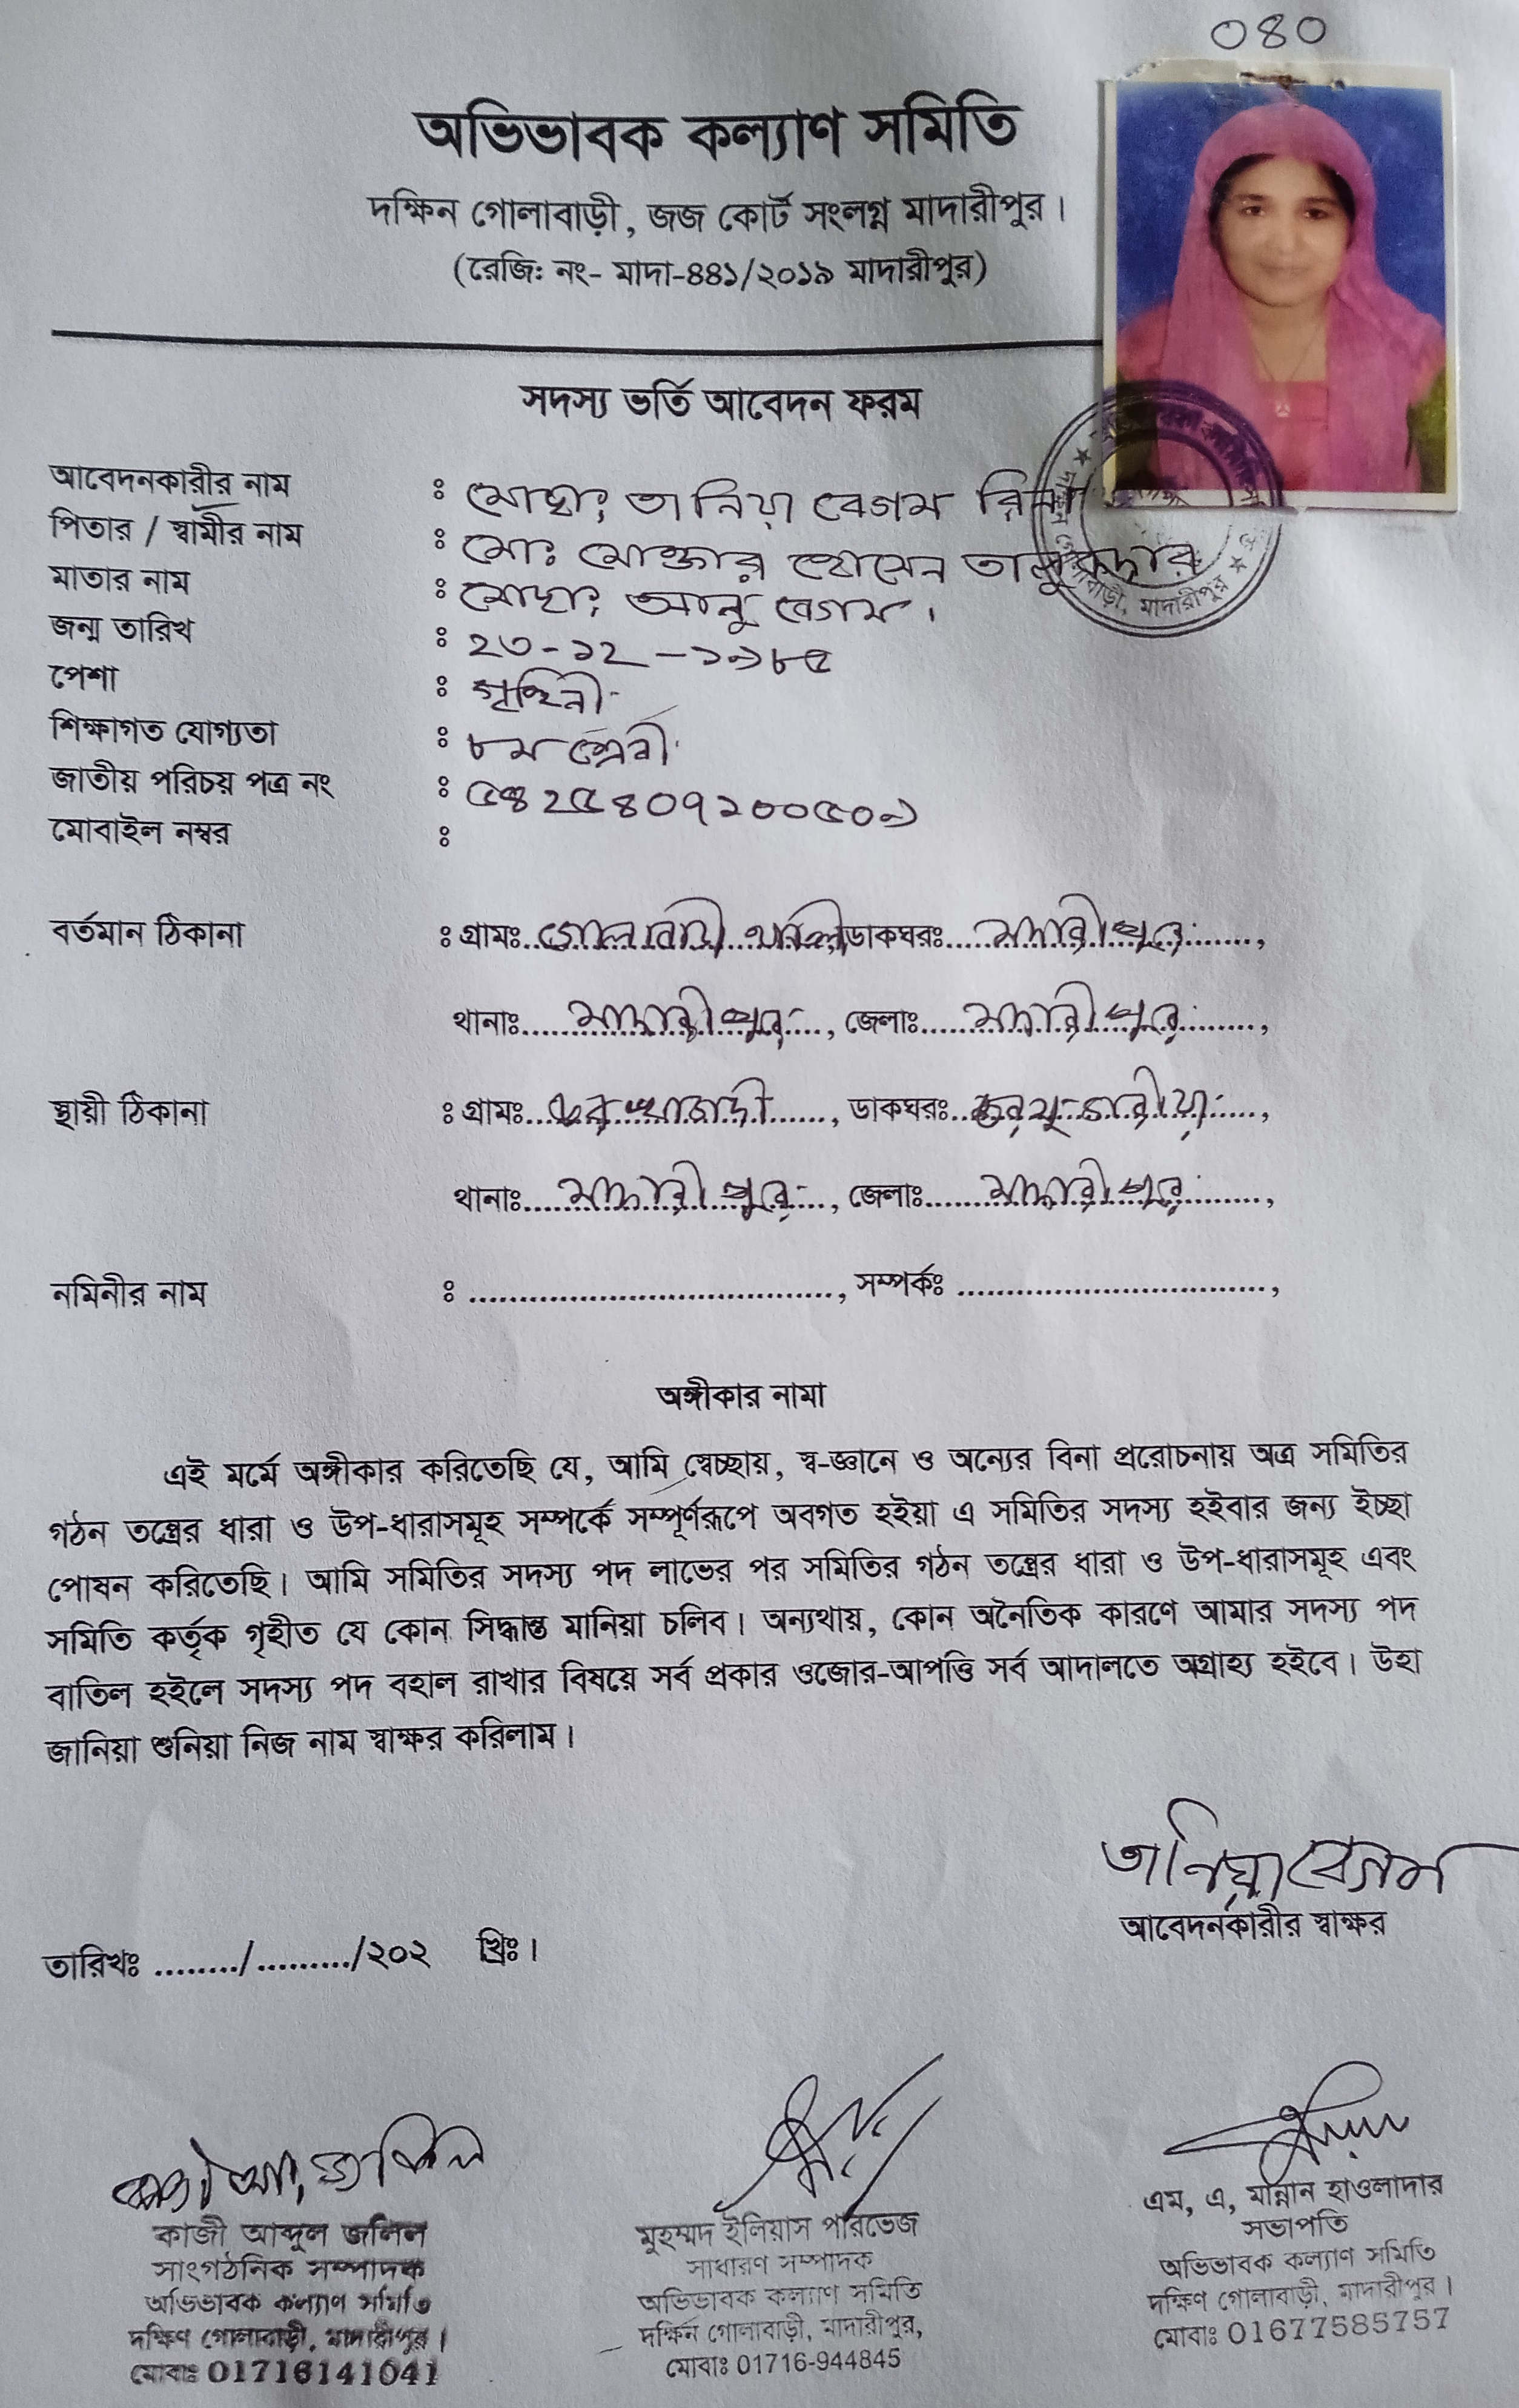 ০৪০
অভিভাবক কল্যাণ সমিতি
দক্ষিন গোলাবাড়ী, জজ কোর্ট সংলগ্ন মাদারীপুর।
(রেজিঃ নং- মাদা-৪৪১/২০১৯ মাদারীপুর)
সদস্য ভর্তি আবেদন ফরম
আবেদনকারীর নাম : মোছাঃ তানিয়া বেগম রিনা
পিতার / স্বামীর নাম : মোঃ মোক্তার হোসেন তালুকদার
মাতার নাম : মোছাঃ আনু বেগম।
জন্ম তারিখ : ২৩-১২-১৯৮৫
পেশা : গৃহিনী
শিক্ষাগত যোগ্যতা : ৮ম শ্রেনী
জাতীয় পরিচয় পত্র নং : ৫৪২৫৪০৭১০০৫০৯
মোবাইল নম্বর :
বর্তমান ঠিকানা : গ্রামঃ গোলাবাড়ী ডাকঘরঃ মাদারীপুর,
থানাঃ মাদারীপুর, জেলাঃ মাদারীপুর,
স্থায়ী ঠিকানা : গ্রামঃ চর, ডাকঘরঃ,
থানাঃ মাদারীপুর, জেলাঃ মাদারীপুর,
নমিনীর নাম : ......................................, সম্পর্কঃ ................................,
অঙ্গীকার নামা
এই মর্মে অঙ্গীকার করিতেছি যে, আমি স্বেচ্ছায়, স্ব-জ্ঞানে ও অন্যের বিনা প্ররোচনায় অত্র সমিতির
গঠন তন্ত্রের ধারা ও উপ-ধারাসমূহ সম্পর্কে সম্পূর্ণরূপে অবগত হইয়া এ সমিতির সদস্য হইবার জন্য ইচ্ছা
পোষন করিতেছি। আমি সমিতির সদস্য পদ লাভের পর সমিতির গঠন তন্ত্রের ধারা ও উপ-ধারাসমূহ এবং
সমিতি কর্তৃক গৃহীত যে কোন সিদ্ধান্ত মানিয়া চলিব। অন্যথায়, কোন অনৈতিক কারণে আমার সদস্য পদ
বাতিল হইলে সদস্য পদ বহাল রাখার বিষয়ে সর্ব প্রকার ওজোর-আপত্তি সর্ব আদালতে অগ্রাহ্য হইবে। উহা
জানিয়া শুনিয়া নিজ নাম স্বাক্ষর করিলাম।
তানিয়া বেগম
আবেদনকারীর স্বাক্ষর
তারিখঃ ......../........./২০২ খ্রিঃ।
কাজী আব্দুল জলিল
সাংগঠনিক সম্পাদক
অভিভাবক কল্যাণ সমিতি
দক্ষিণ গোলাবাড়ী, মাদারীপুর।
মোবাঃ 01716141041
মুহম্মদ ইলিয়াস পারভেজ
সাধারণ সম্পাদক
অভিভাবক কল্যাণ সমিতি
দক্ষিন গোলাবাড়ী, মাদারীপুর,
মোবাঃ 01716-944845
এম, এ, মান্নান হাওলাদার
সভাপতি
অভিভাবক কল্যাণ সমিতি
দক্ষিণ গোলাবাড়ী, মাদারীপুর।
মোবাঃ 01677585757